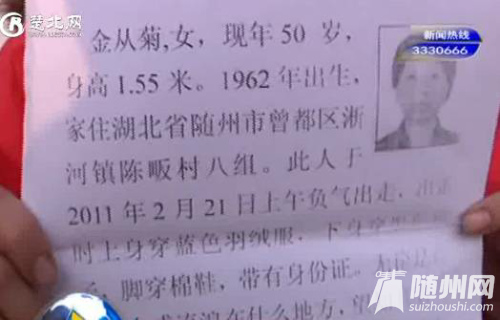 楚北网
新闻热线
3330666
金从菊,女，现年 50 岁，
身高 1.55 米。1962 年出生，
家住湖北省随州市曾都区淅
河镇陈畈村八组。此人于
2011 年 2 月 21 日上午负气出走，出走
时上身穿蓝色羽绒服，下身穿黑色
脚穿棉鞋，带有身份证。
流浪在什么地方，望
随州网
suizhoushi.com